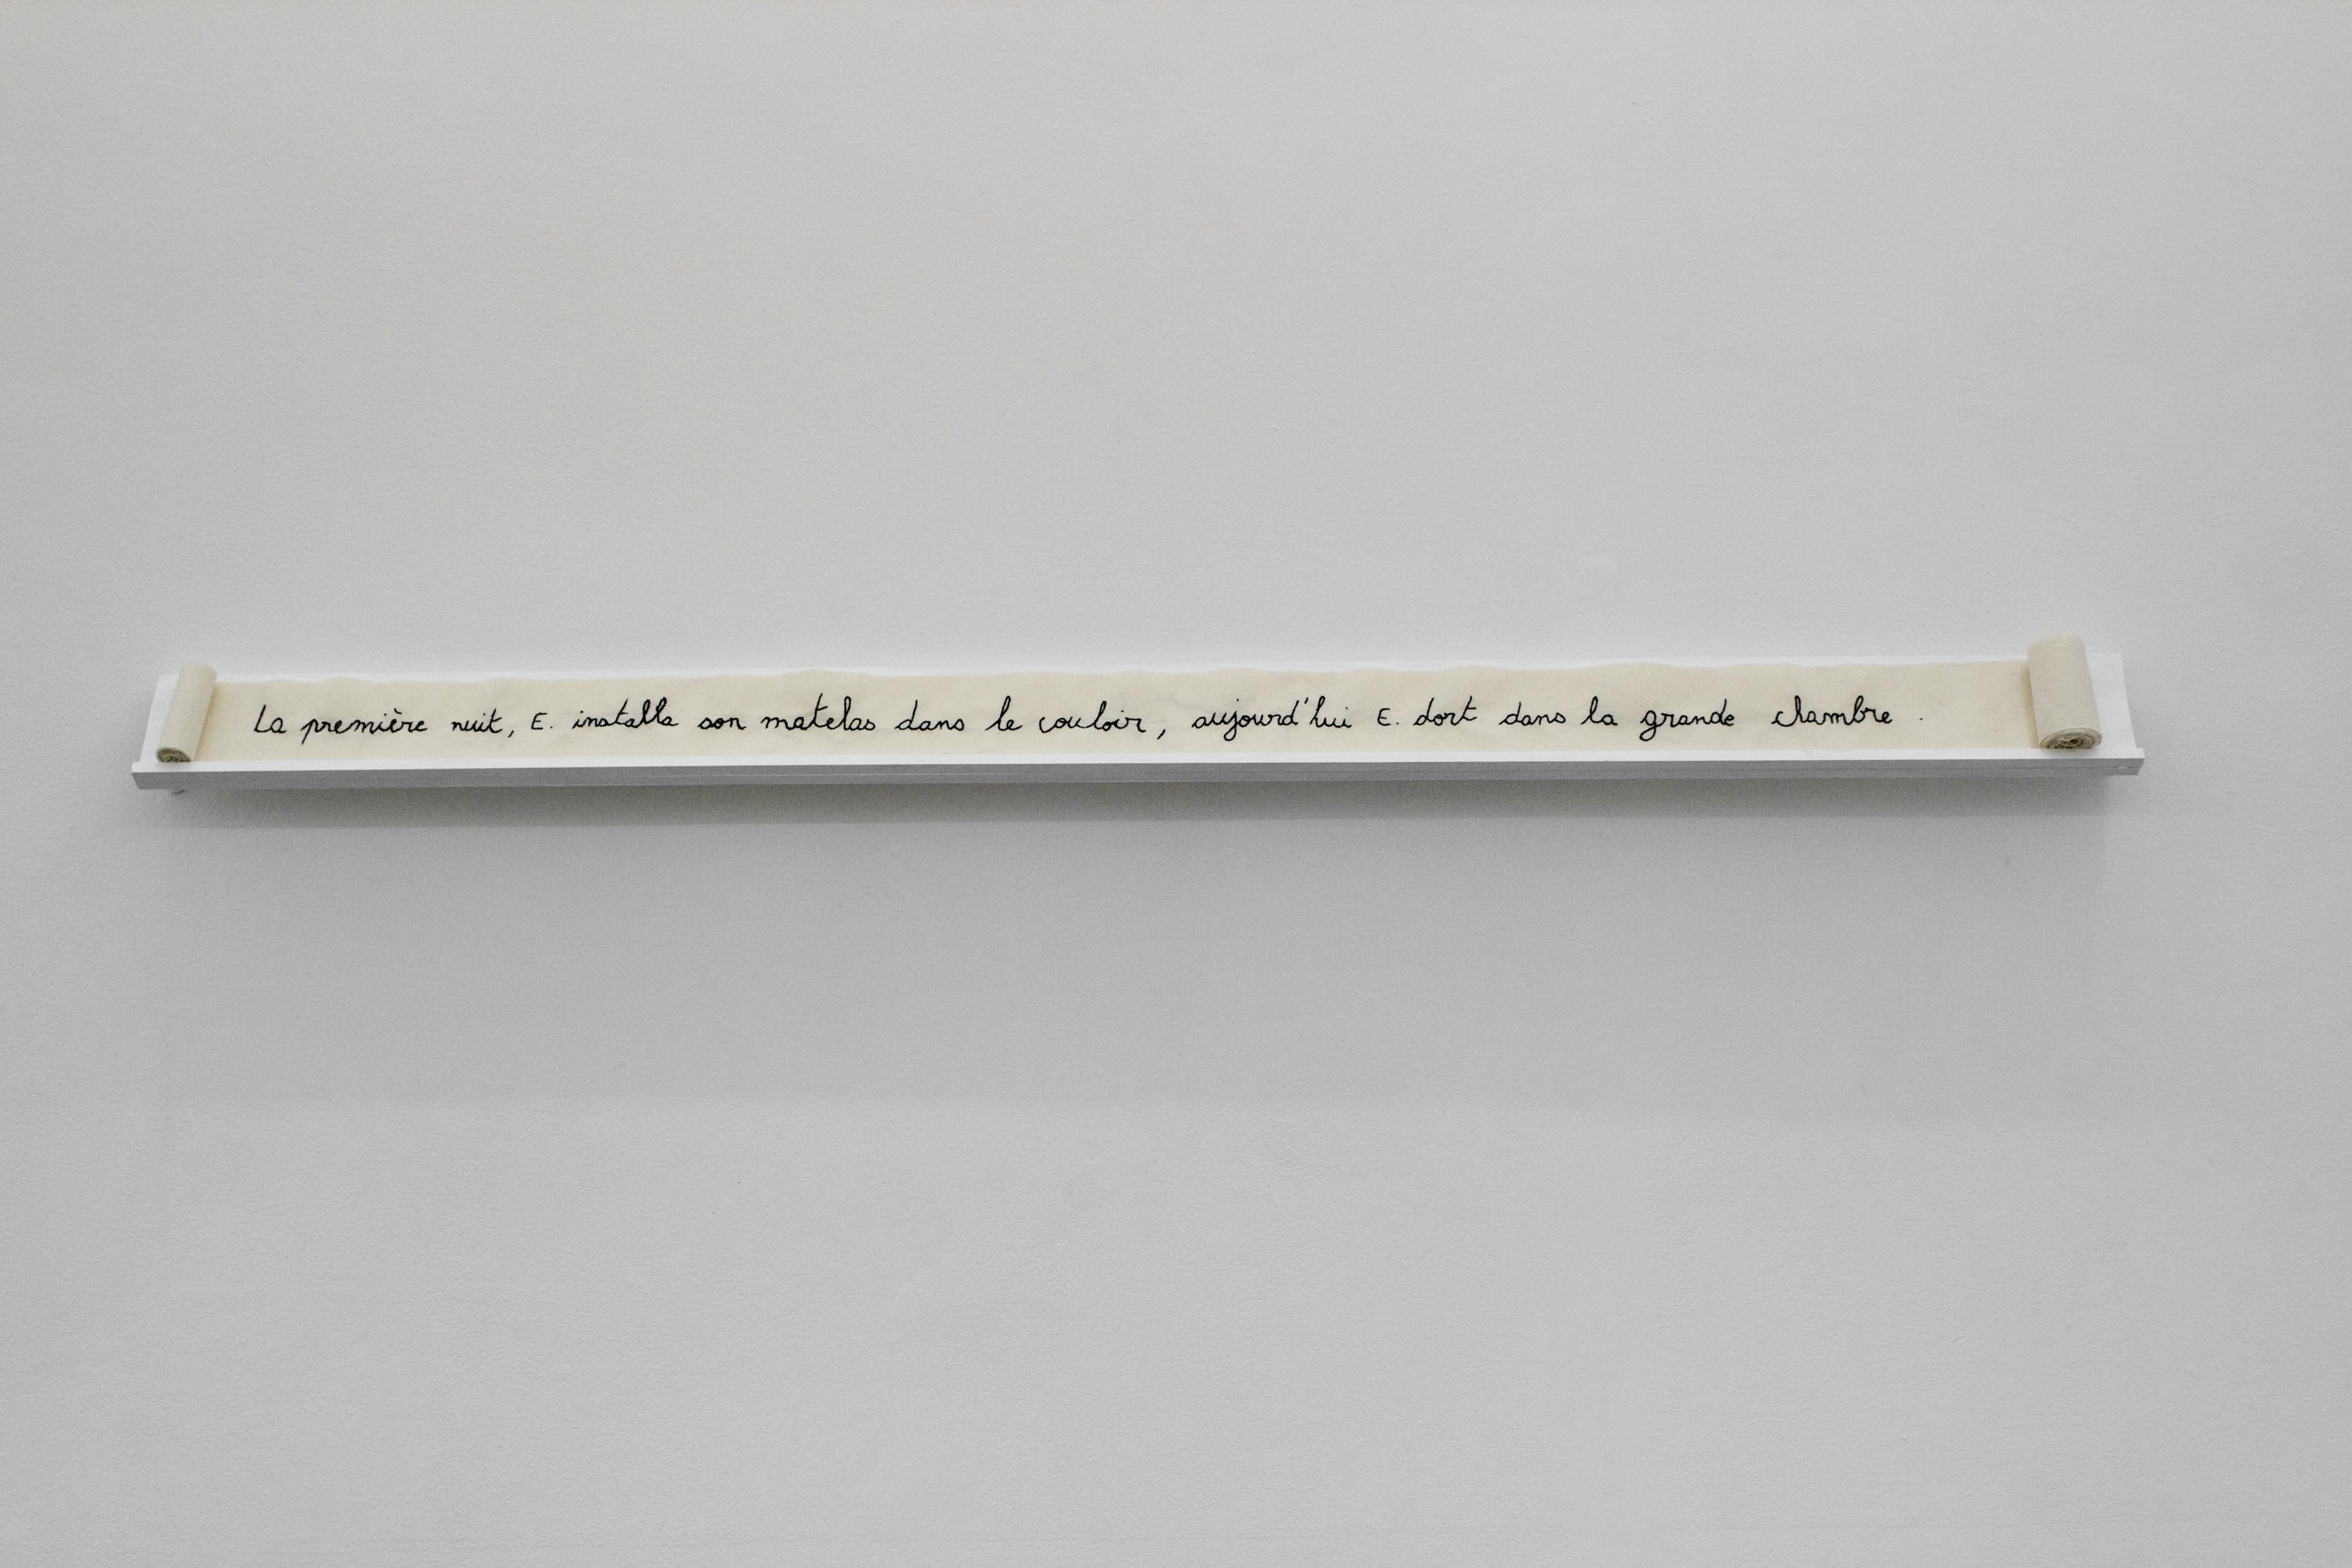 La première nuit, E. installa son matelas dans le couloir, aujourd'hui E. dort dans la grande chambre.